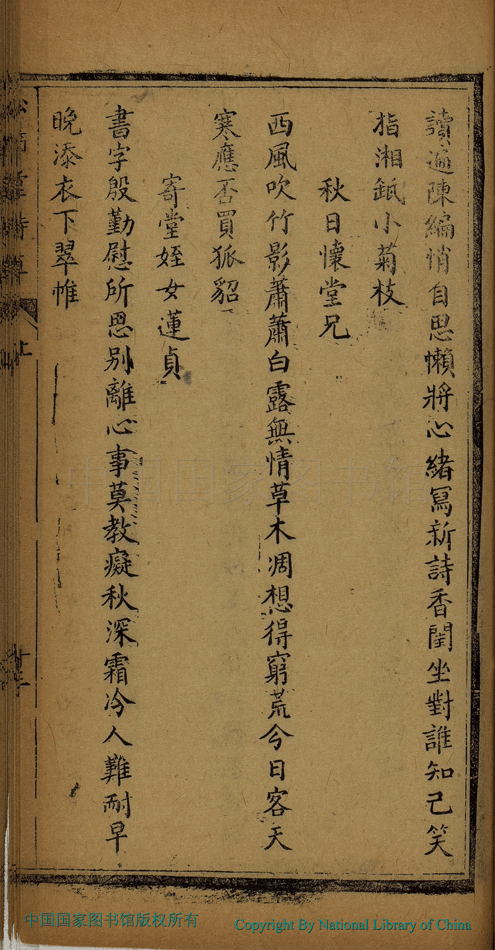 讀遍陳編悄自思懶將心緒寫新詩香閨坐對誰知己笑
指湘缾小菊枝
秋日懷堂兄
西風吹竹影蕭蕭白露無情草木凋想得窮荒今日客天
寒應否買狐貂
寄堂姪女蓮貞
書字殷勤慰所思別離心事莫教癡秋深霜冷人難耐早
晚添衣下翠帷
中国国家图书馆版权所有
Copyright By National Library of China